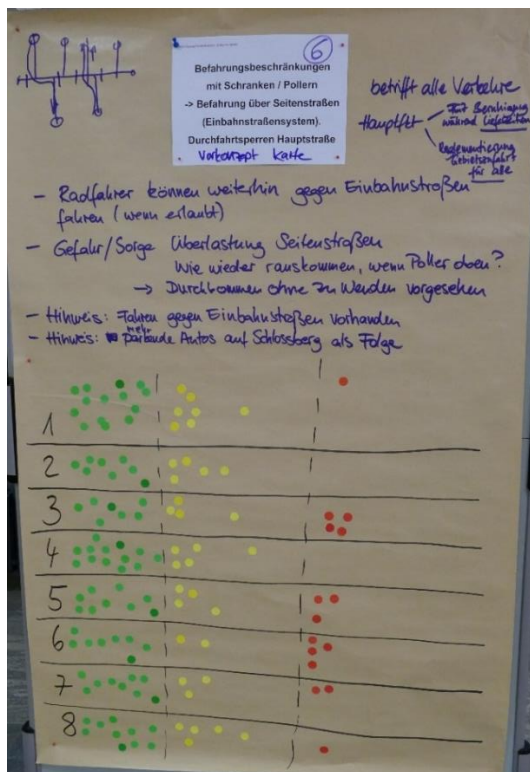 6
Befahrungsbeschränkungen
mit Schranken / Pollern
-> Befahrung über Seitenstraßen
(Einbahnstraßensystem).
Durchfahrtsperren Hauptstraße
Verkonzept Karte
betrifft alle Verkehre
während Lieferzeiten
Reglementierung
für alle
- Radfahrer können weiterhin gegen Einbahnstraßen
fahren (wenn erlaubt)
- Gefahr/Sorge Überlastung Seitenstraßen
Wie wieder rauskommen, wenn Poller oben?
→ Durchkommen ohne zu Wenden vorgesehen
- Hinweis: Fahren gegen Einbahnstoßen vorhanden
- Hinweis: mehr parkende Autos auf Schlossberg als Folge
1
2
3
4
5
6
7
8